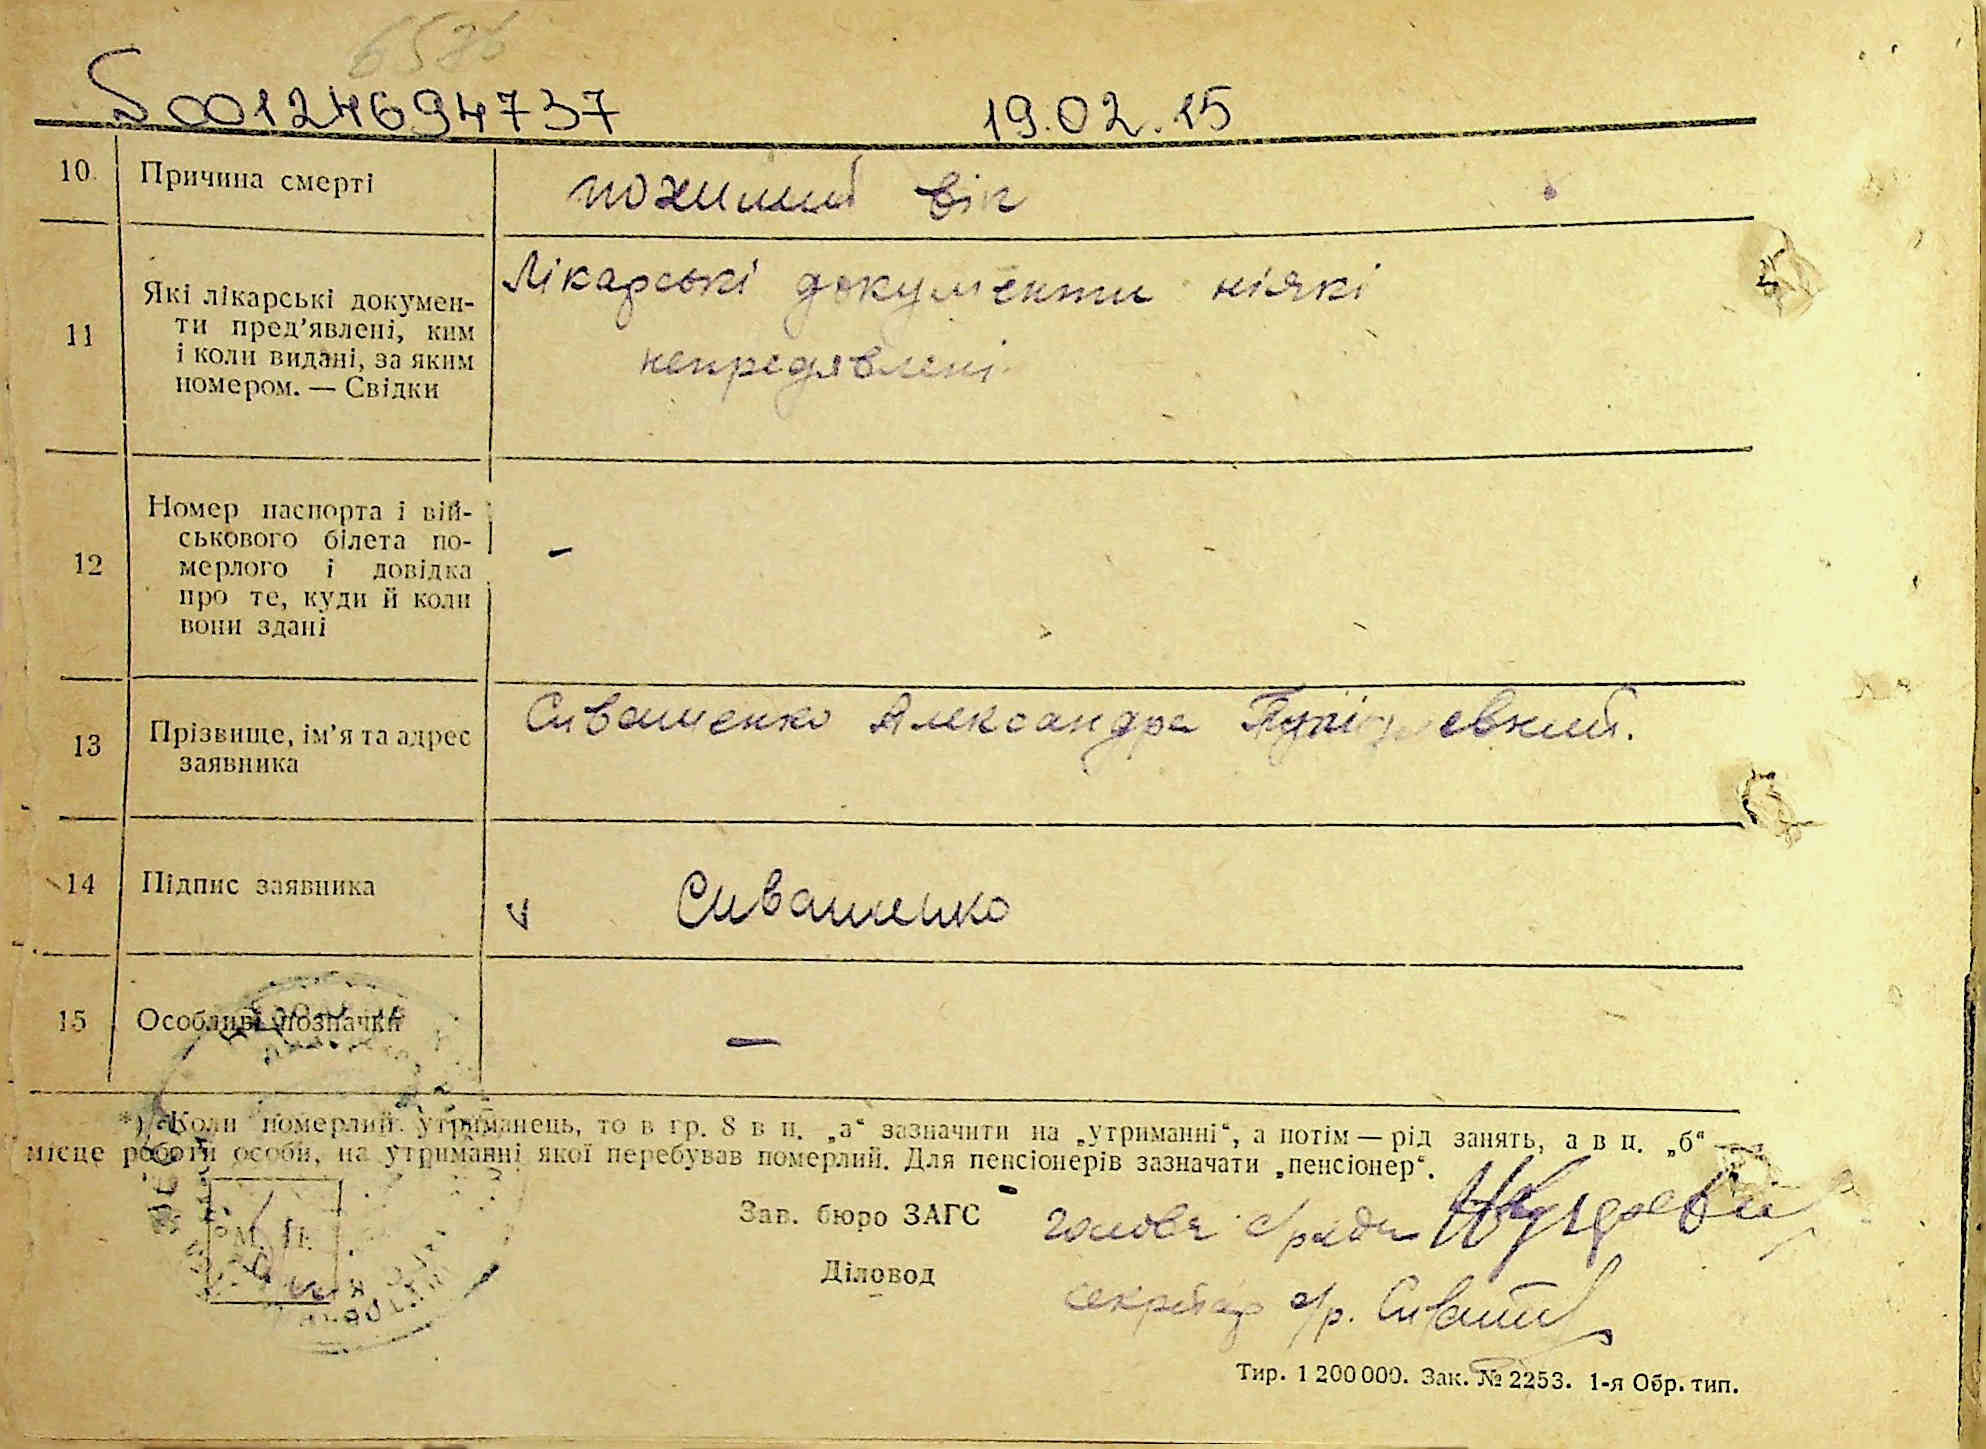 S00124694737 19.02.15
10. Причина смерті похилий вік
11 Які лікарські докумен-
ти пред’явлені, ким
і коли видані, за яким
номером. — Свідки
Лікарські документи ніякі
непредявлені.
12 Номер паспорта і вій-
ськового білета по-
мерлого і довідка
про те, куди й коли
вони здані
–
13 Прізвище, ім’я та адрес
заявника
Сиващенко Александра
14 Підпис заявника Сиващенко
15 Особливі позначки —
*) Коли померлий утриманець, то в гр. 8 в п. „а“ зазначити на „утриманні“, а потім — рід занять, а в п. „б“ —
місце роботи особи, на утриманні якої перебував померлий. Для пенсіонерів зазначати „пенсіонер“.
М. П.
Зав. бюро ЗАГС голова с/ради
Діловод секретар с/р.
Тир. 1 200 000. Зак. № 2253. 1-я Обр. тип.